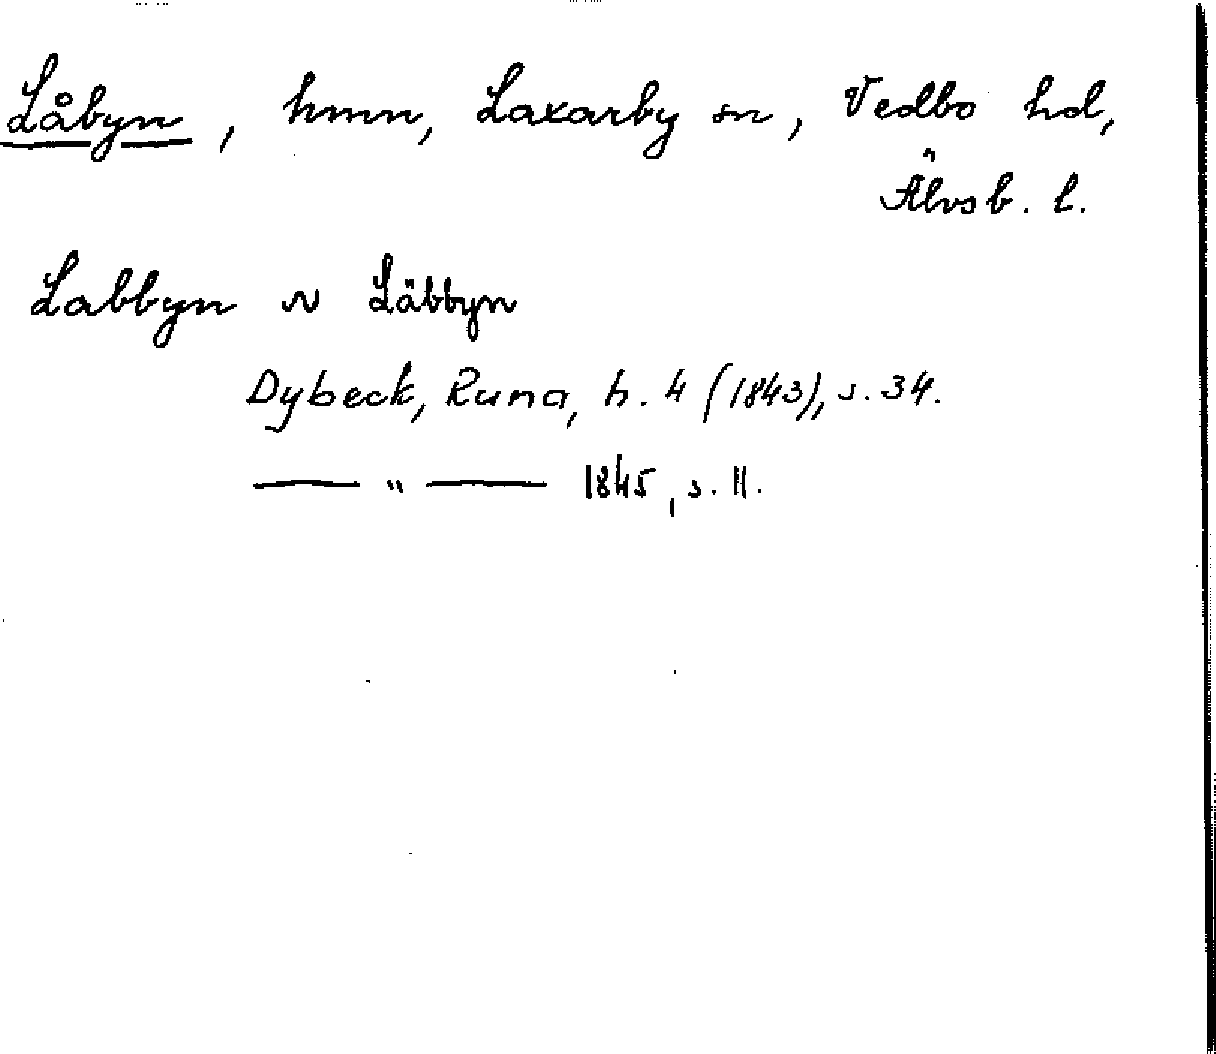 Låbyn, hmn, Laxarby sn, Vedbo hd,
Älvsb. l.
Labbyn ~ Läbbyn
Dybeck, Runa, h. 4 (1843), s. 34.
— " — 1845, s. 11.